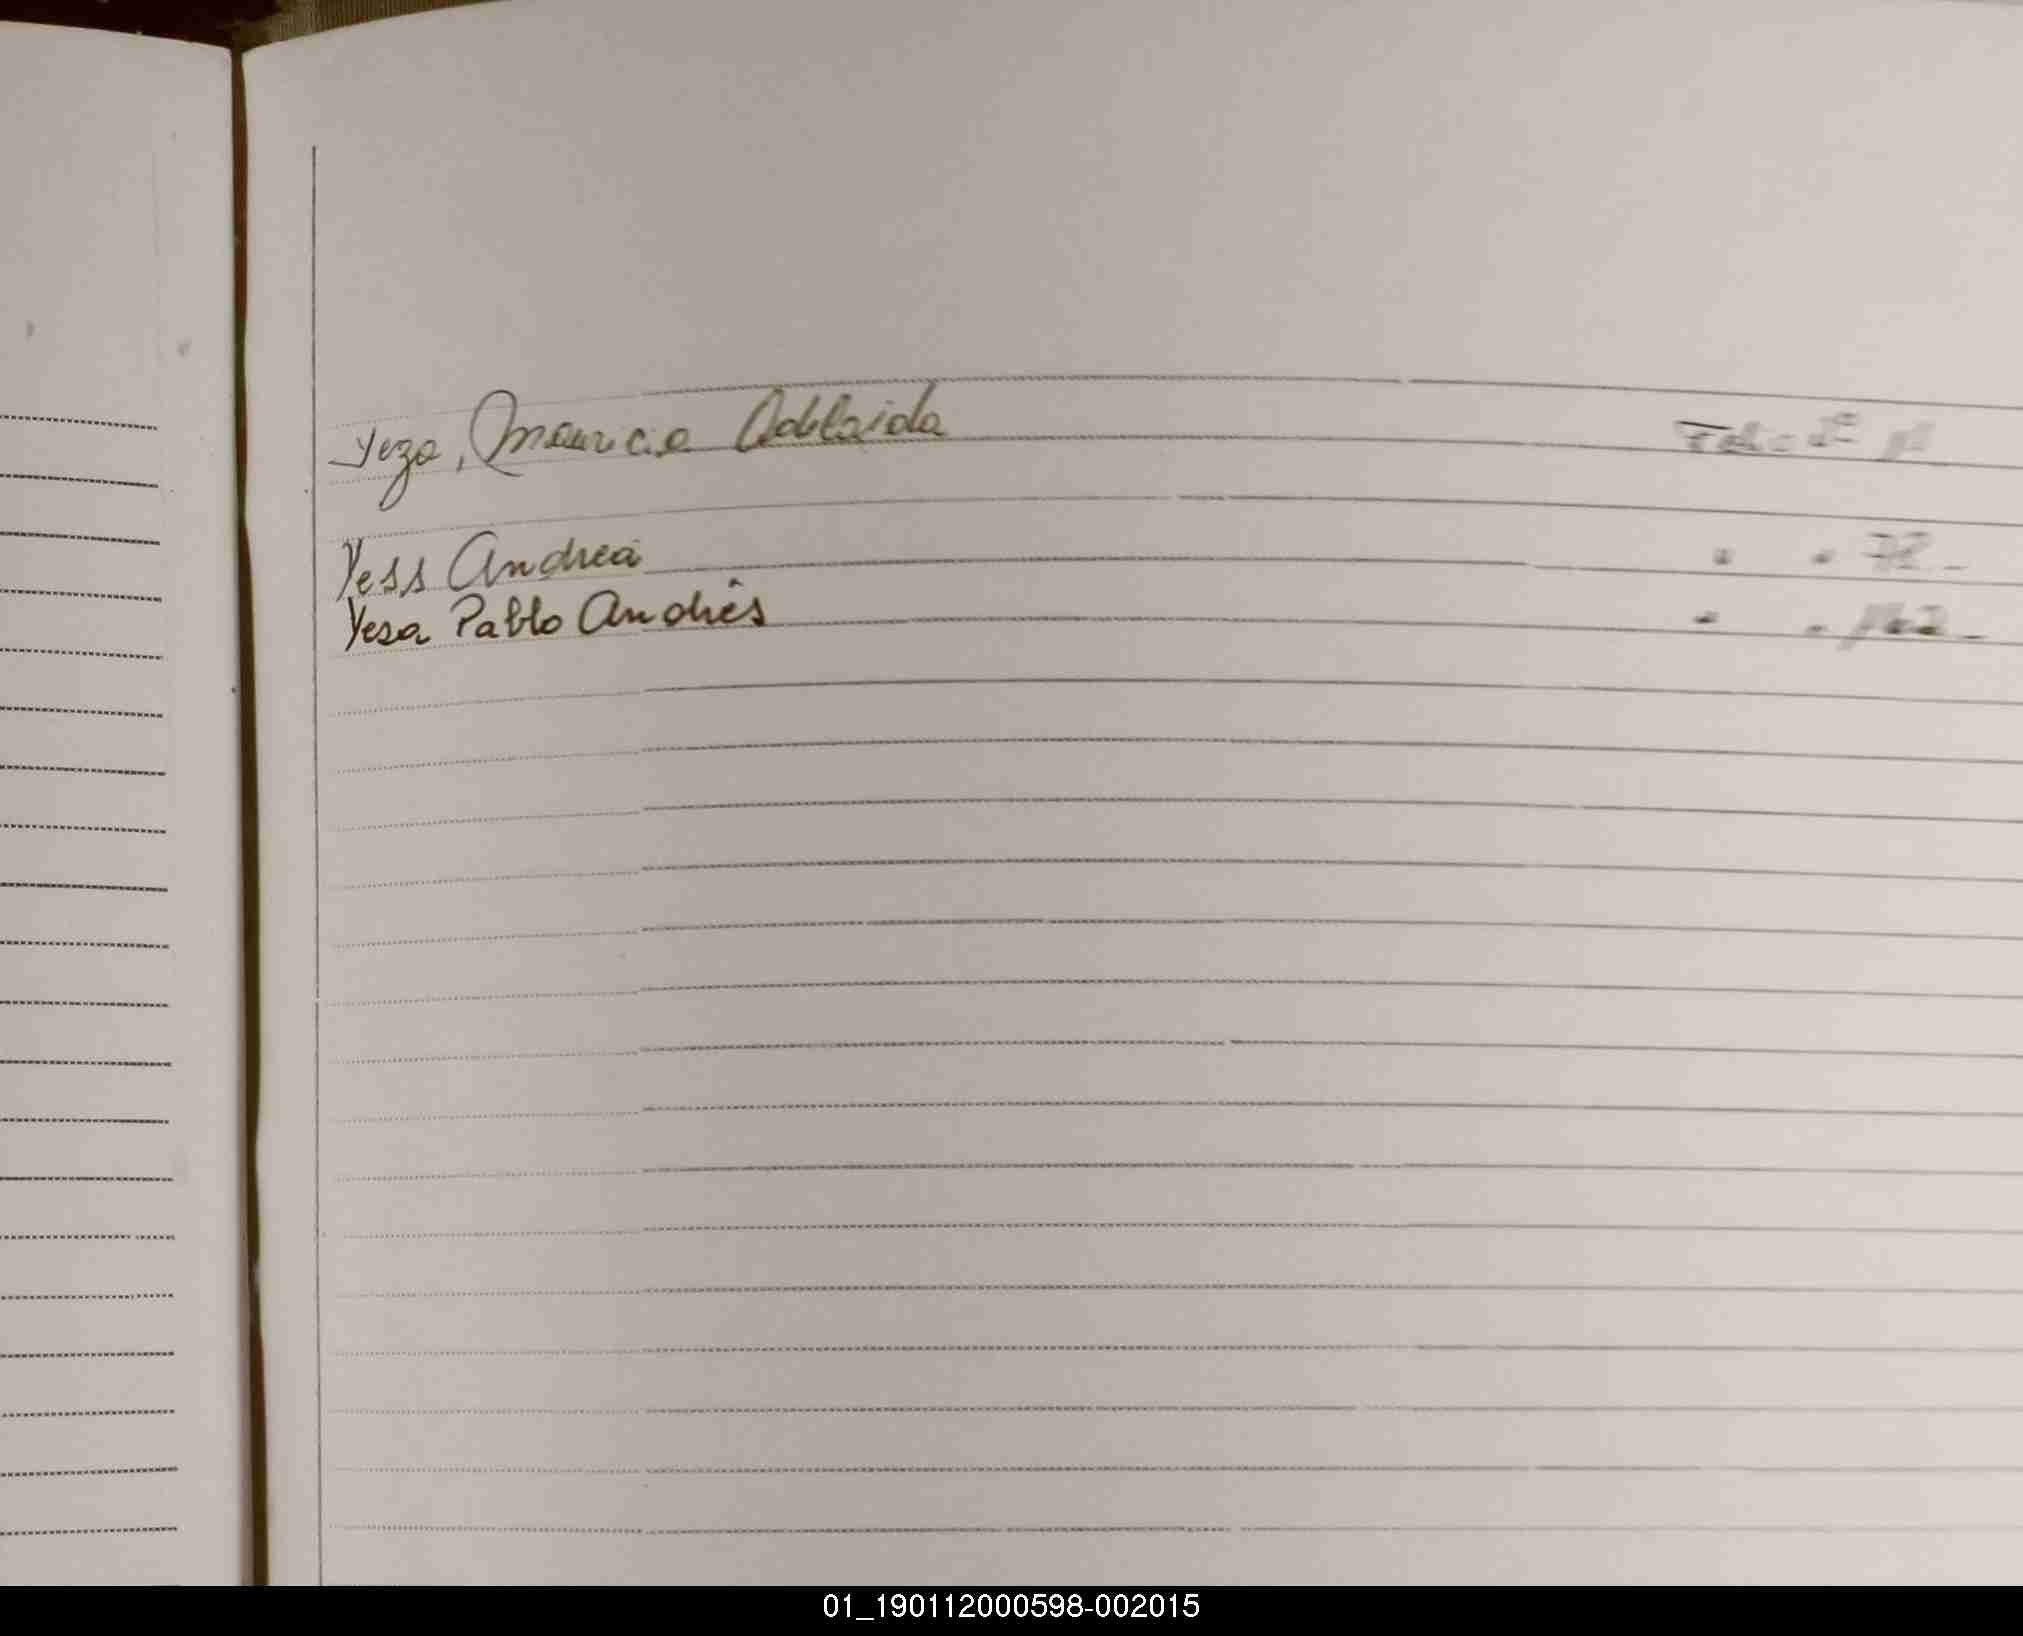 Yeza, Mauricia Adelaida
Yess Andrea " " 72 -
Yesa Pablo Andrés " "
01_190112000598-002015